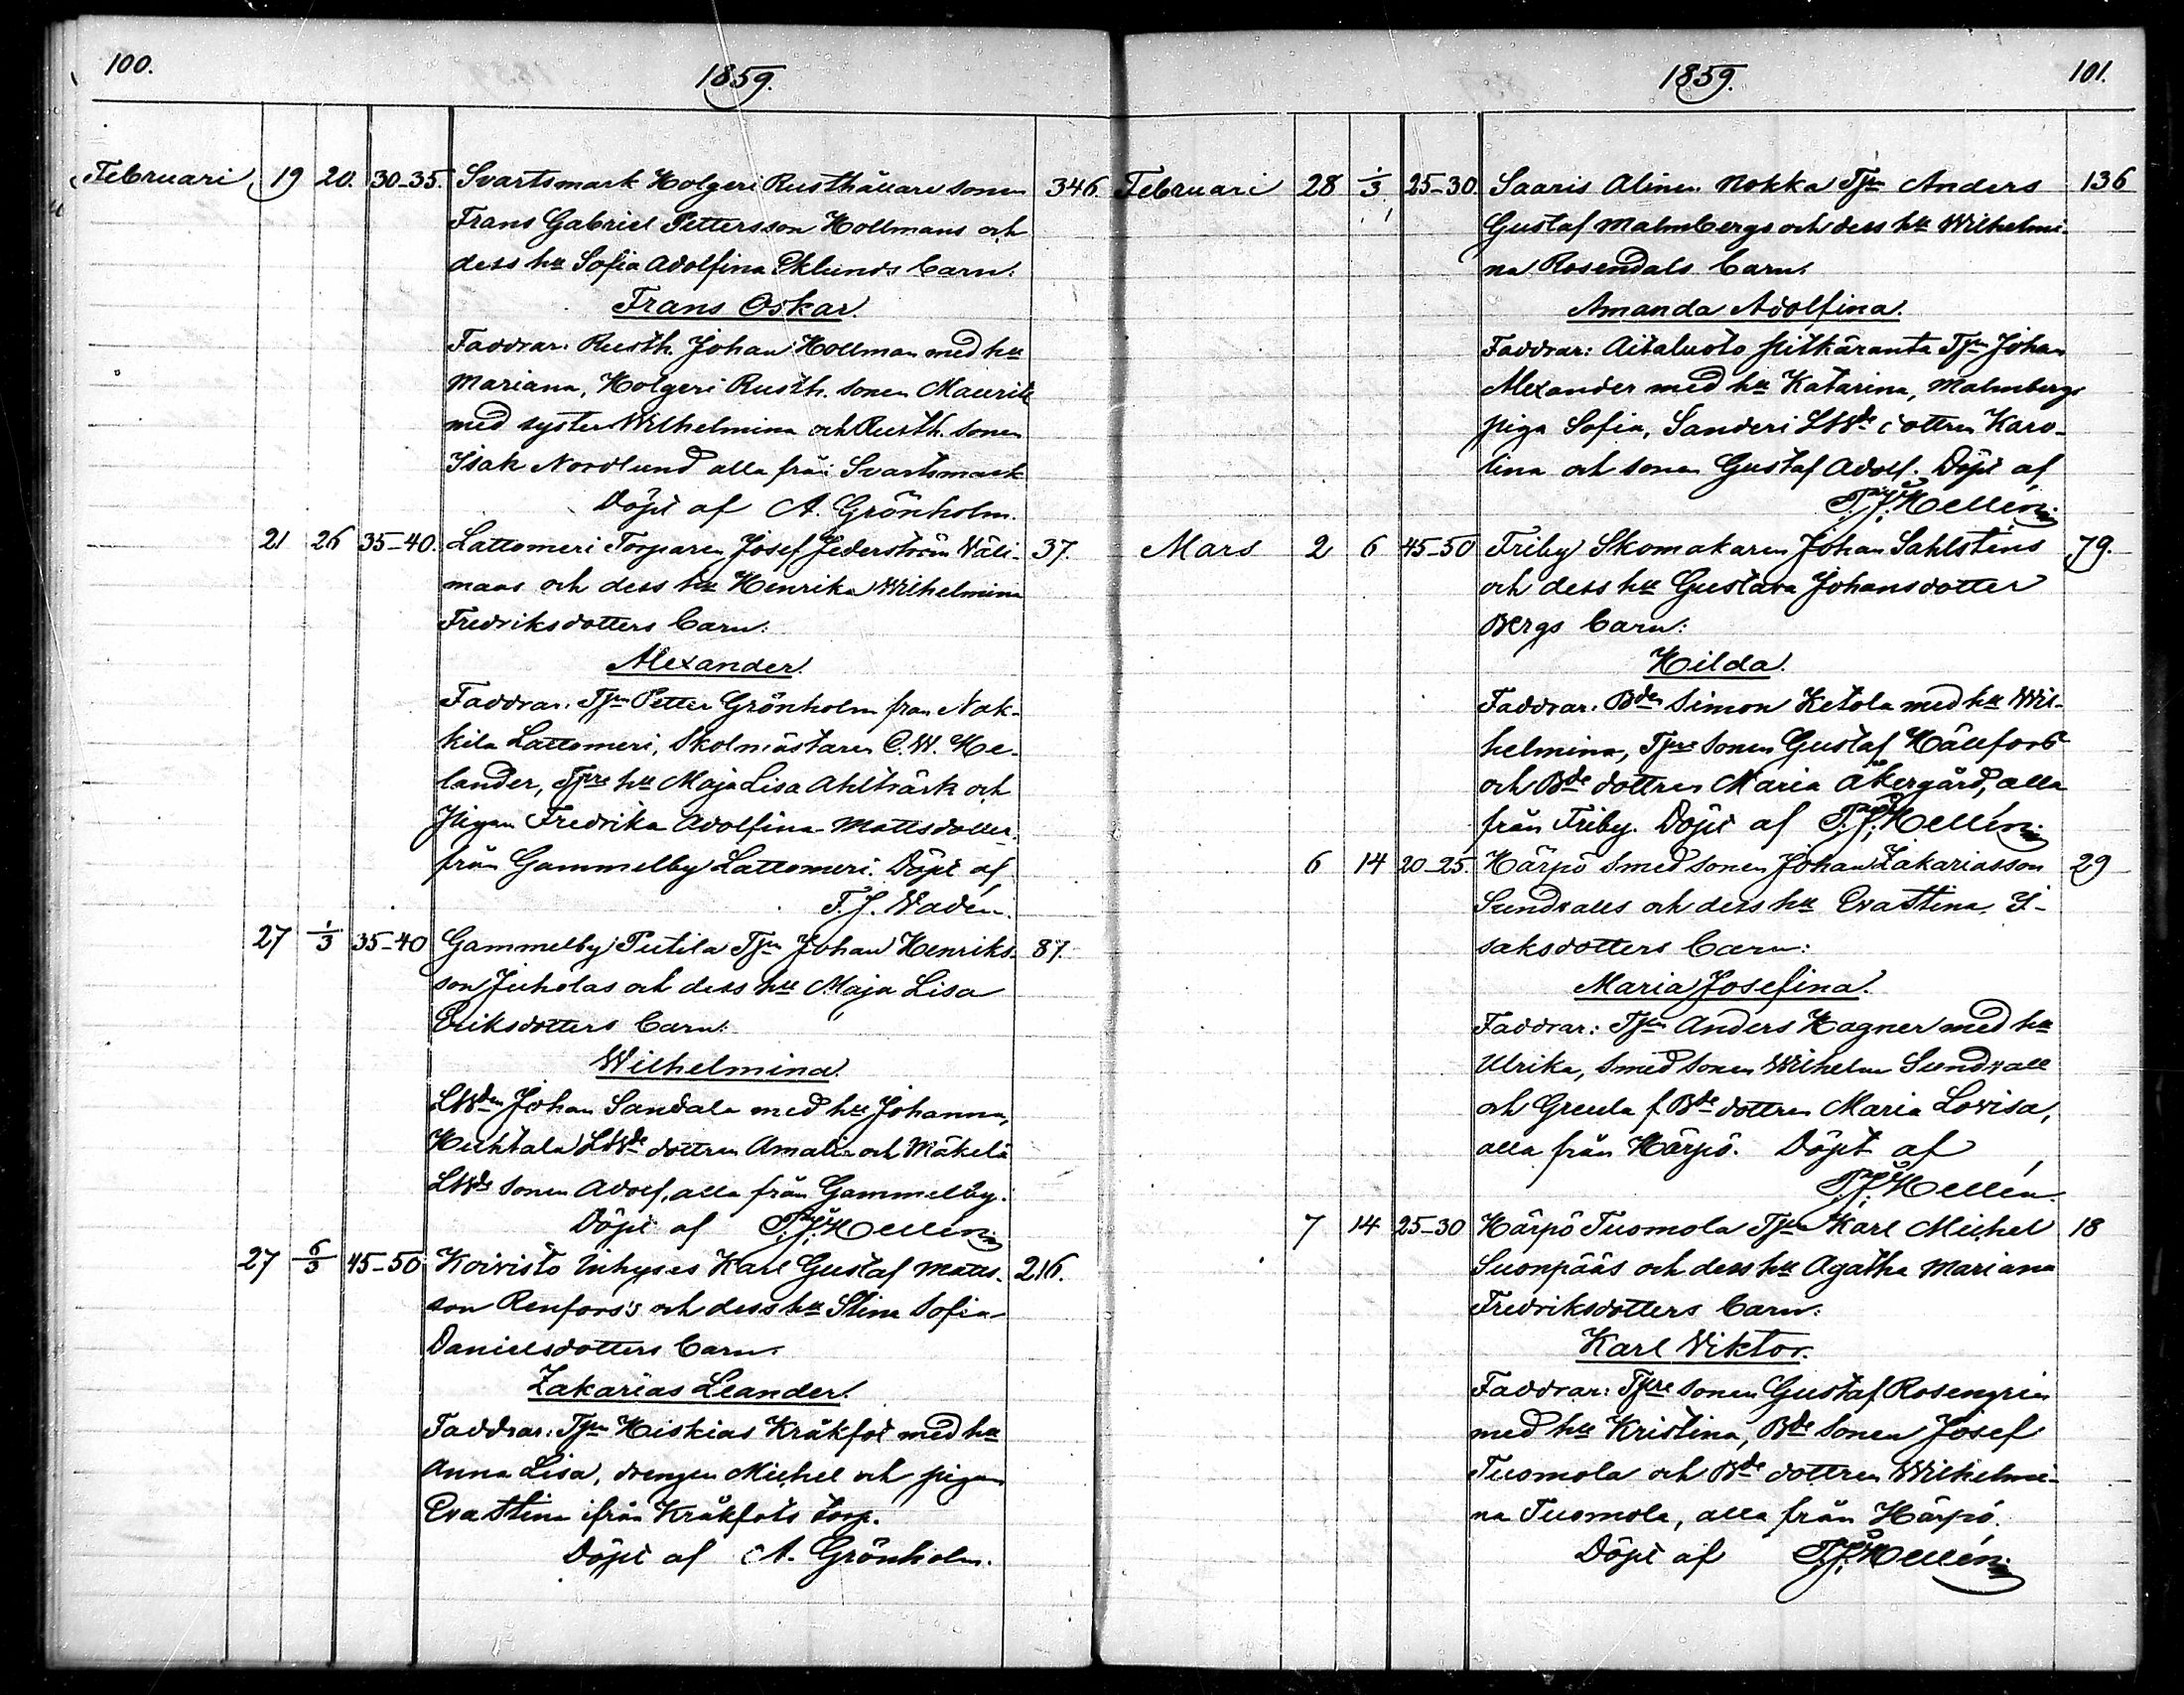 100.
1859.
Februari 19 20. 30-35. Svartsmark Holgeri Rusthållare sonen 346.
Frans Gabriel Pettersson Hollmans och
dess hu Sofia Adolfina Eklunds barn:
Frans Oskar.
Faddrar: Rusth. Johan Hollman med hu
Mariana, Holgeri Rusth. sonen Maurits
med syster Wilhelmina och Rusth. sonen
Isak Nordlund alla från Svartsmark
Döpt af A. Grönholm.
21 26 35-40. Lattomeri Torparen Josef Jederström Väli- 37.
maas och dess hu Henrika Wilhelmina
Fredriksdotters barn:
Alexander.
Faddrar: Tjn Petter Grönholm fran Nak-
kila Lattomeri, Skolmästaren C. W. He-
lander, Tjre hu Maja Lisa Ahlträsk och
Pigan Fredrika Adolfina Mattsdotter,
från Gammelby Lattomeri. Döpt af
F. J. Wadén.
27 1/3 35-40 Gammelby Putila Tjn Johan Henriks- 87.
son Juholas och dess hu Maja Lisa
Eriksdotters barn:
Wilhelmina.
LWden Johan Sandala med hu Johanna,
Huhtala LWde dottren Amalia och Mäkelä
LWde sonen Adolf, alla från Gammelby.
Döpt af F. J. Hellén.
27 6/3 45-50 Koivisto Inhyses Karl Gustaf Matts- 216.
son Renfors's och dess hu Stina Sofia
Danielsdotters barn.
Zakarias Leander.
Faddrar: Tjn Hiskias Kråkfot med hu
Anna Lisa, drengen Michel och pigan
Eva Stina ifrån Kråkfots torp.
Döpt af A. Grönholm.
1859.
101.
Februari 28 1/3 25-30. Saaris Alinen Nokka Tjn Anders 136
Gustaf Malmbergs och dess hu Wilhelmi-
na Rosendals barn.
Amanda Adolfina.
Faddrar: Aitaluoto Pitkäranta Tjn Johan
Alexander med hu Katarina, Malmbergs
piga Sofia, Sanderi LWde dottren Karo-
lina och sonen Gustaf Adolf. Döpt af
F. J. Hellén.
Mars 2 6 45-50 Friby Skomakaren Johan Sahlsténs 79.
och dess hu Gustava Johansdotter
Bergs barn:
Hilda.
Faddrar: Bden Simon Ketola med hu Wil-
helmina, Tjre sonen Gustaf Hällfors
och Bde dottren Maria Åkergård, alla
från Friby. Döpt af F. J. Hellén.
6 14 20-25. Härpö smed sonen Johan Zakariasson 29
Sundvalls och dess hu Eva Stina I-
saksdotters barn:
Maria Josefina.
Faddrar: Tjn Anders Hagner med hu
Ulrika, smed sonen Wilhelm Sundvall
och Greula f. Bde dottren Maria Lovisa,
alla från Härpö. Döpt af
F. J. Hellén.
7 14 25-30 Härpö Tuomola Tjn Karl Michel 18
Suonpääs och dess hu Agatha Mariana
Fredriksdotters barn:
Karl Viktor.
Faddrar: Tjre sonen Gustaf Rosengrén
med hu Kristina, Bde sonen Josef
Tuomola och Bde dottren Wilhelmi-
na Tuomola, alla från Härpö.
Döpt af F. J. Hellén.